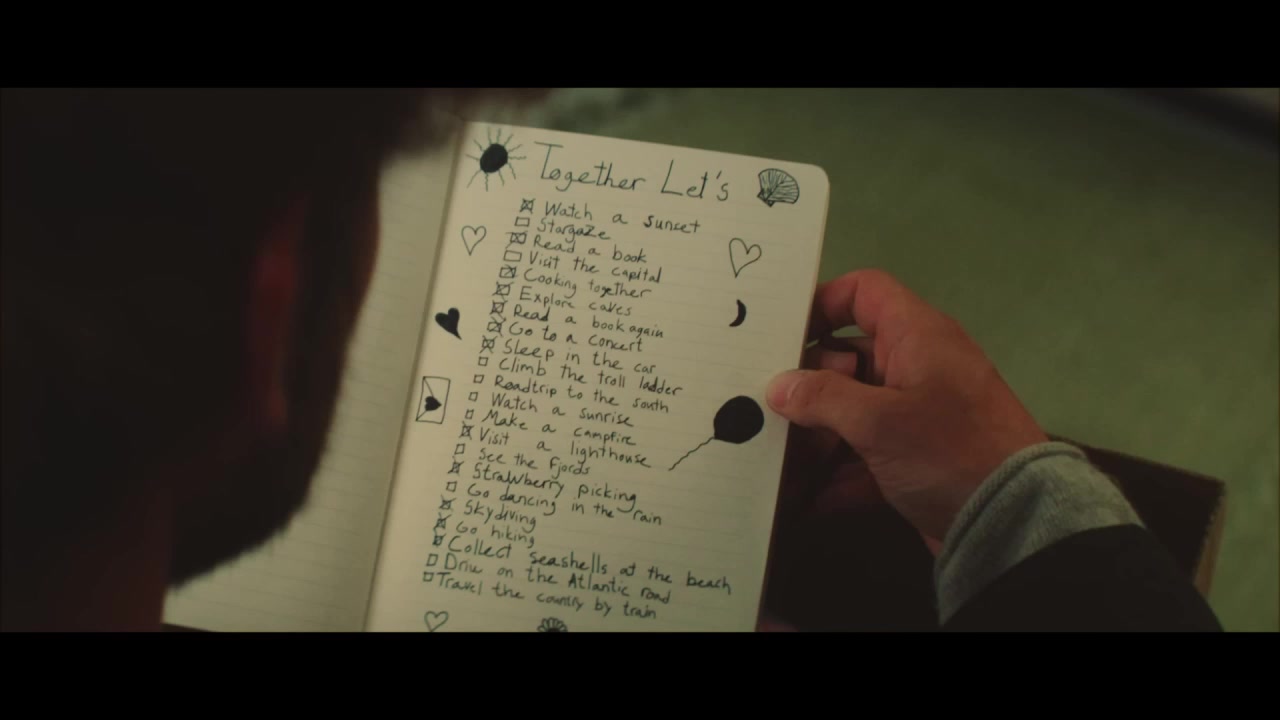 Together Let's
Watch a sunset
Stargaze
Read a book
Visit the capital
Cooking together
Explore caves
Read a book again
Go to a concert
Sleep in the car
Climb the troll ladder
Roadtrip to the south
Watch a sunrise
Make a campfire
Visit a lighthouse
See the Fjords
Strawberry picking
Go dancing in the rain
Skydiving
Go hiking
Collect seashells at the beach
Drive on the Atlantic road
Travel the country by train